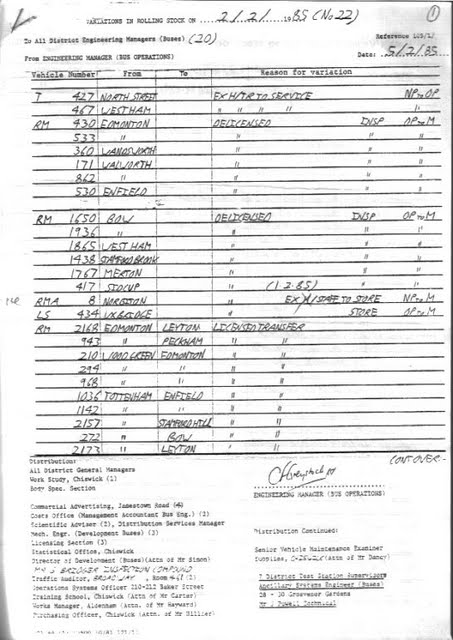 VARIATIONS IN ROLLING STOCK ON 2/2/ 1985 (No 22) 1
To All District Engineering Managers (Buses) (20) Reference
From ENGINEERING MANAGER (BUS OPERATIONS) Date: 5/2/85
Vehicle Number From To Reason for variation
T 427 NORTH STREET EX H/TR TO SERVICE NP to OP
467 WEST HAM " " " " "
RM 430 EDMONTON DELICENSED INSP OP to M
533 " " " "
360 WANDSWORTH " " "
171 WALWORTH " " "
862 " " " "
530 ENFIELD " " "
RM 1650 BOW DELICENSED INSP OP to M
1936 " " " "
1865 WEST HAM " " "
1438 STAMFORD BROOK " " "
1767 MERTON " " "
417 SIDCUP " (1 2 85) " "
RMA 8 NORBITON " EX STAFF TO STORE NP to M
LS 434 UXBRIDGE " STORE OP to M
RM 2168 EDMONTON LEYTON LICENSED TRANSFER
943 " PECKHAM " "
210 WOOD GREEN EDMONTON " "
294 " " " "
968 " " " "
1036 TOTTENHAM ENFIELD " "
1142 " " " "
2157 " STAMFORD HILL " "
272 " BOW " "
2173 " LEYTON " "
CONT OVER
Distribution:
All District General Managers
Work Study, Chiswick (1)
Body Spec. Section
ENGINEERING MANAGER (BUS OPERATIONS)
Commercial Advertising, Jamestown Road
Costs Office (Management Accountant Bus Eng.) (2)
Scientific Adviser (2), Distribution Services Manager
Mech. Engr. (Development Buses) (3)
Licensing Section (3)
Statistical Office, Chiswick
Director of Development (Buses)(Attn of Mr Simon)
INSPECTION COMPOUND
Traffic Auditor, BROADWAY, Room
Operations Systems Officer 210-212 Baker Street
Training School, Chiswick (Attn of Mr Carter)
Works Manager, Aldenham (Attn of Mr Hayward)
Purchasing Officer, Chiswick (Attn of Mr Hillier)
Distribution Continued:
Senior Vehicle Maintenance Examiner
Supplies, CHISWICK (Attn of Mr Dancy)
7 District Test Station Supervisors
Ancillary Systems Engineer (Buses)
28 - 30 Grosvenor Gardens
Mr J Powell Technical